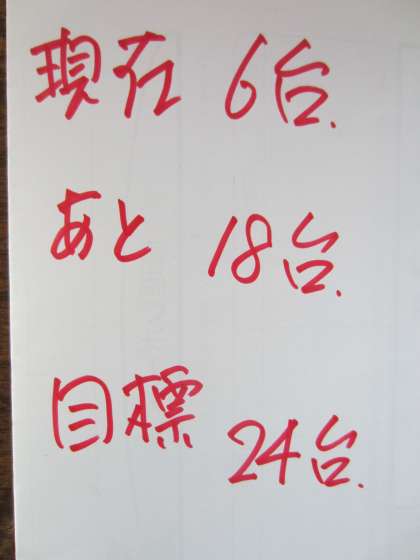 現在 6台.
あと 18台.
目標 24台.